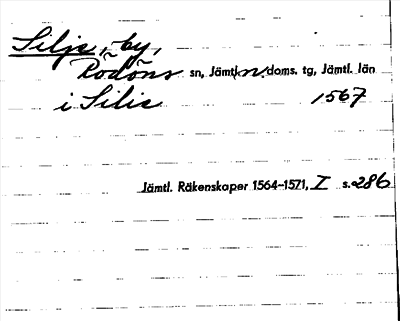 Silje, by,
Rödöns sn, Jämtl. n. doms. tg, Jämtl. län
i Silie 1567
Jämtl. Räkenskaper 1564-1571, I s. 286